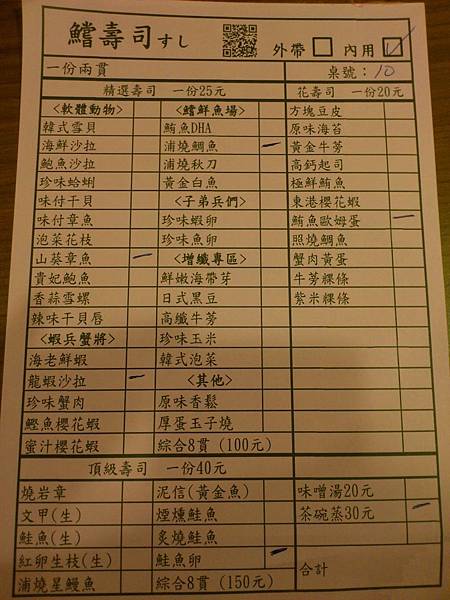 鱛壽司すし
外帶 內用
一份兩貫 桌號：10
精選壽司 一份25元 花壽司 一份20元
<軟體動物> <鱛鮮魚場> 方塊豆皮
韓式雪貝 鮪魚DHA 原味海苔
海鮮沙拉 浦燒鯛魚 黃金牛蒡
鮑魚沙拉 浦燒秋刀 高鈣起司
珍味蛤蜊 黃金白魚 極鮮鮪魚
味付干貝 <子弟兵們> 東港櫻花蝦
味付章魚 珍味蝦卵 鮪魚歐姆蛋
泡菜花枝 珍味魚卵 照燒鯛魚
山葵章魚 <增纖專區> 蟹肉黃蛋
貴妃鮑魚 鮮嫩海帶芽 牛蒡粿條
香蒜雪螺 日式黑豆 紫米粿條
辣味干貝唇 高纖牛蒡
<蝦兵蟹將> 珍味玉米
海老鮮蝦 韓式泡菜
龍蝦沙拉 <其他>
珍味蟹肉 原味香鬆
鰹魚櫻花蝦 厚蛋玉子燒
蜜汁櫻花蝦 綜合8貫(100元)
頂級壽司 一份40元
燒岩章 泥信(黃金魚) 味噌湯20元
文甲(生) 煙燻鮭魚 茶碗蒸30元
鮭魚(生) 炙燒鮭魚
紅卵生枝(生) 鮭魚卵 合計
浦燒星鰻魚 綜合8貫(150元)